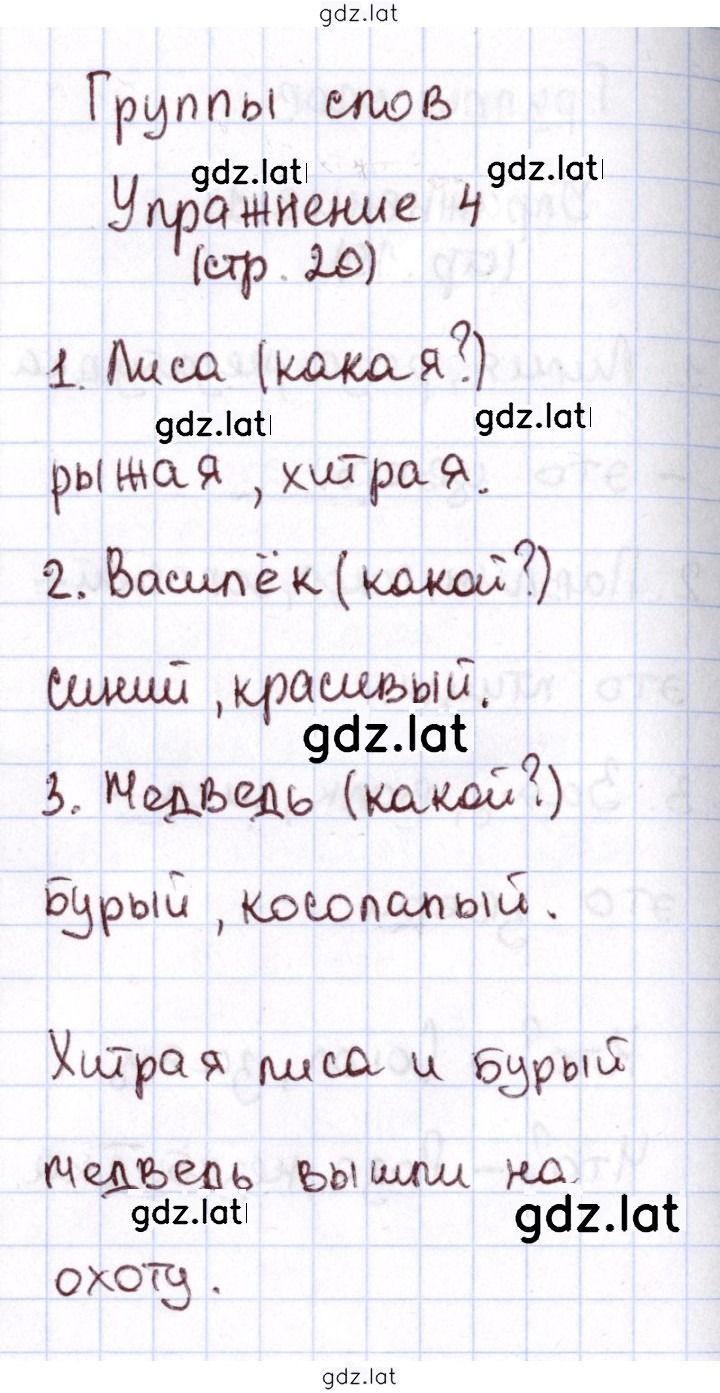 gdz.lat
Группы слов
gdz.lat gdz.lat
Упражнение 4
(стр. 20)
1. Лиса (какая?)
gdz.lat gdz.lat
рыжая, хитрая.
2. Василёк (какой?)
синий, красивый.
gdz.lat
3. Медведь (какой?)
бурый, косолапый.
Хитрая лиса и бурый
медведь вышли на
gdz.lat gdz.lat
охоту.
gdz.lat